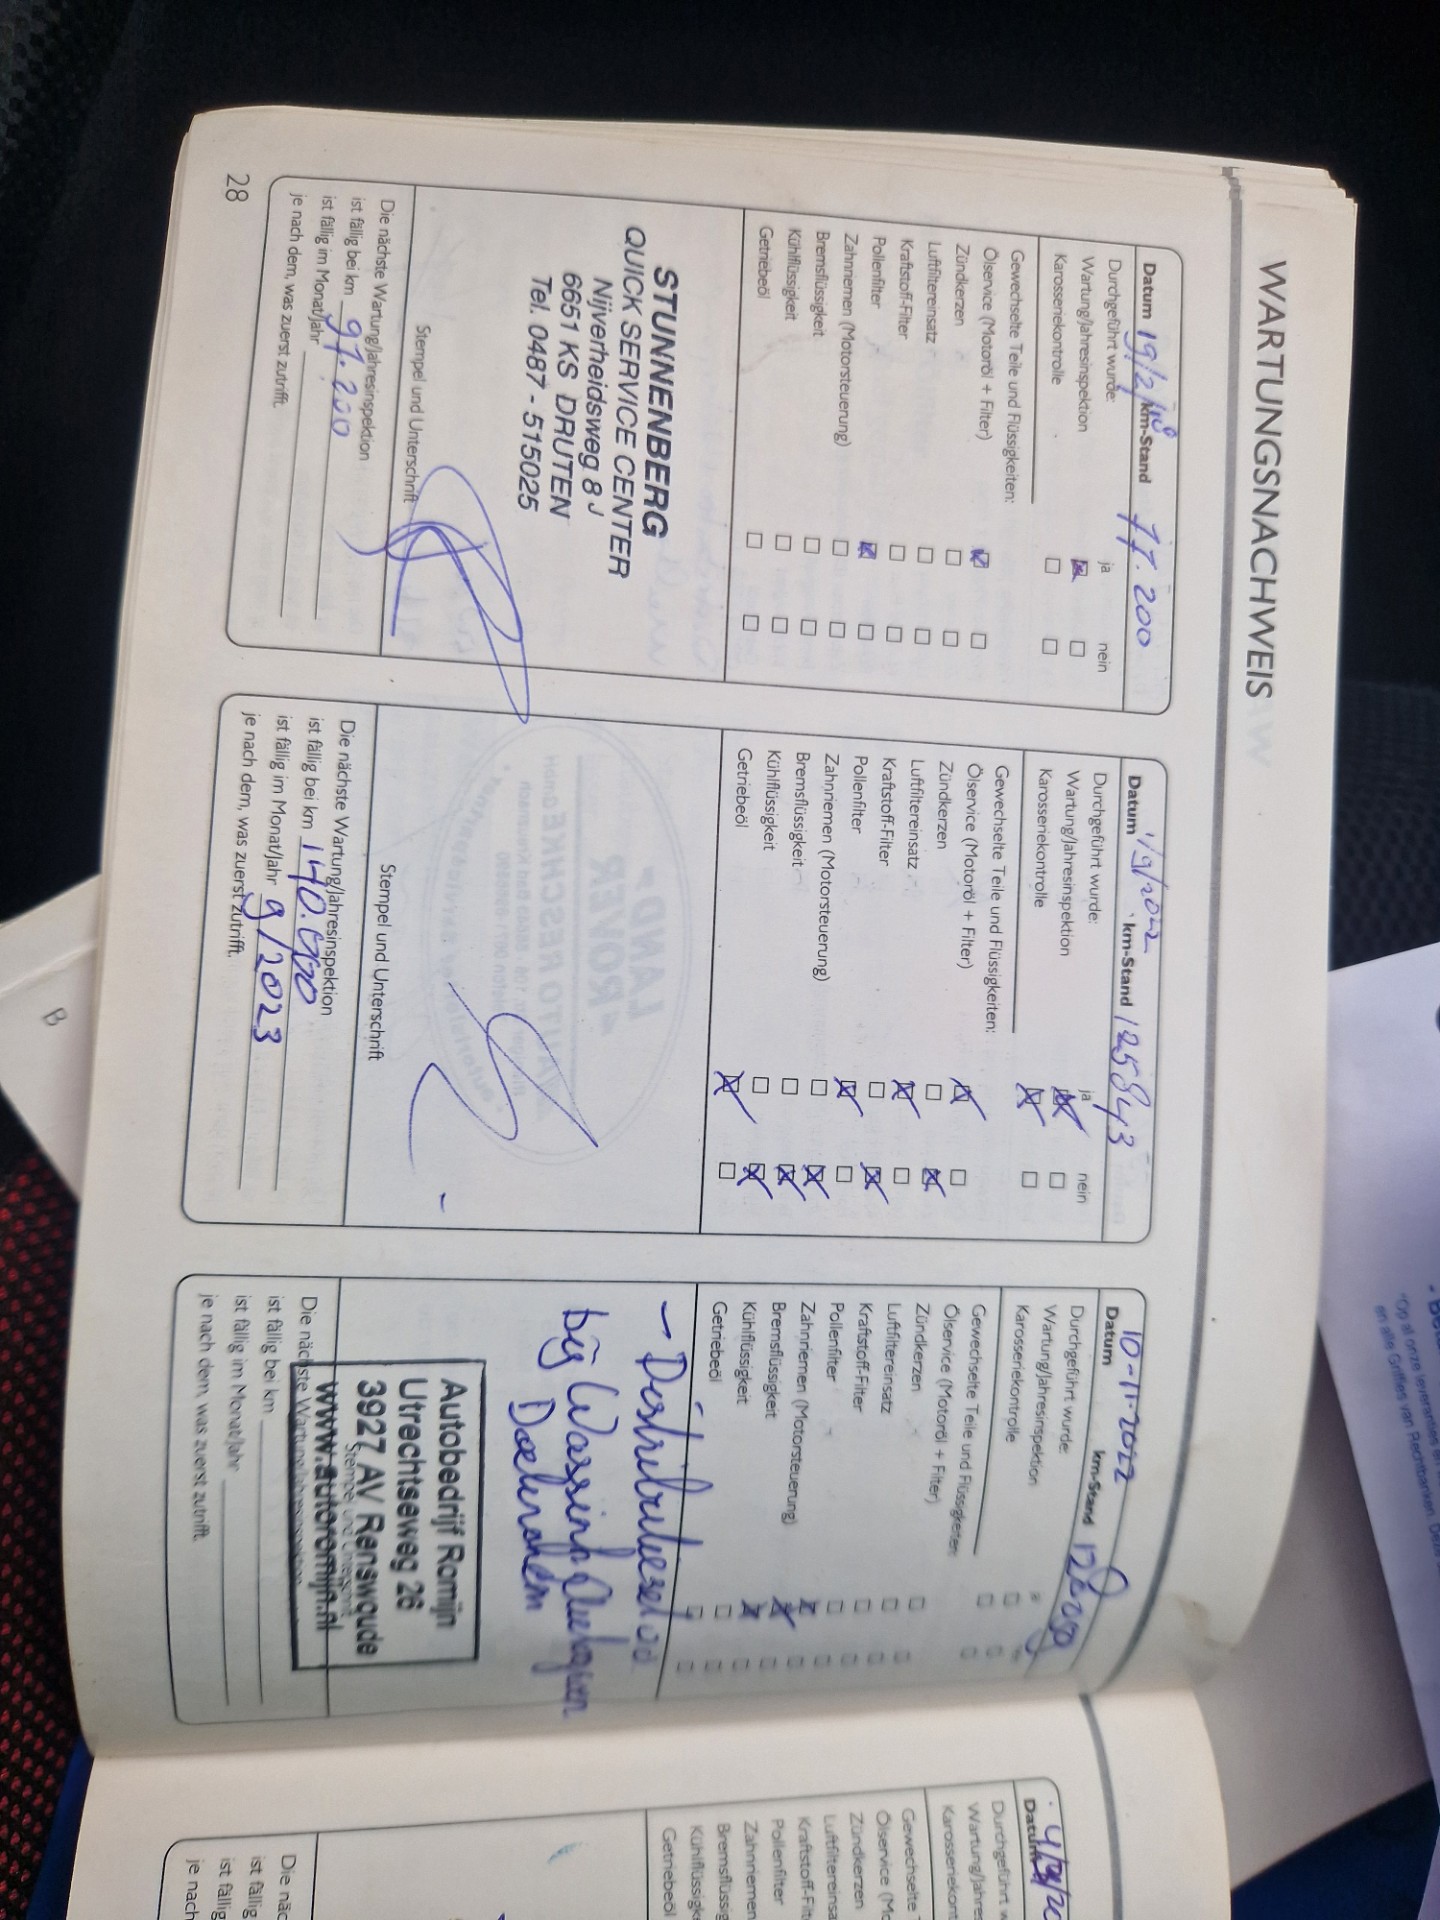 WARTUNGSNACHWEIS
Datum 19/2/18 km-Stand 77.200
Durchgeführt wurde: ja nein
Wartung/Jahresinspektion
Karosseriekontrolle
Gewechselte Teile und Flüssigkeiten:
Ölservice (Motoröl + Filter)
Zündkerzen
Luftfiltereinsatz
Kraftstoff-Filter
Pollenfilter
Zahnriemen (Motorsteuerung)
Bremsflüssigkeit
Kühlflüssigkeit
Getriebeöl
STUNNENBERG
QUICK SERVICE CENTER
Nijverheidsweg 8 J
6651 KS DRUTEN
Tel. 0487 - 515025
Stempel und Unterschrift
Die nächste Wartung/Jahresinspektion
ist fällig bei km 97.200
ist fällig im Monat/Jahr
je nach dem, was zuerst zutrifft.
28
Datum 1/9/2022 km-Stand 125843
Durchgeführt wurde: ja nein
Wartung/Jahresinspektion
Karosseriekontrolle
Gewechselte Teile und Flüssigkeiten:
Ölservice (Motoröl + Filter)
Zündkerzen
Luftfiltereinsatz
Kraftstoff-Filter
Pollenfilter
Zahnriemen (Motorsteuerung)
Bremsflüssigkeit
Kühlflüssigkeit
Getriebeöl
Stempel und Unterschrift
Die nächste Wartung/Jahresinspektion
ist fällig bei km 140.000
ist fällig im Monat/Jahr 9/2023
je nach dem, was zuerst zutrifft.
Datum 10-11-2022 km-Stand
Durchgeführt wurde:
Wartung/Jahresinspektion
Karosseriekontrolle
Gewechselte Teile und Flüssigkeiten:
Ölservice (Motoröl + Filter)
Zündkerzen
Luftfiltereinsatz
Kraftstoff-Filter
Pollenfilter
Zahnriemen (Motorsteuerung)
Bremsflüssigkeit
Kühlflüssigkeit
Getriebeöl
bij
Autobedrijf Romijn
Utrechtseweg 26
3927 AV Renswoude
Stempel und Unterschrift
www.autoromijn.nl
Die nächste Wartung/Jahresinspektion
ist fällig bei km
ist fällig im Monat/Jahr
je nach dem, was zuerst zutrifft.
Datum
Durchgeführt w
Wartung/Jahres
Karosseriekont
Gewechselte T
Ölservice (Mo
Zündkerzen
Luftfiltereinsa
Kraftstoff-Filt
Pollenfilter
Zahnriemen
Bremsflüssig
Kühlflüssigk
Getriebeöl
Die näc
ist fällig
ist fällig
je nach
B
"Op al onze leveranties
en alle Griffies van Rechtbanken.